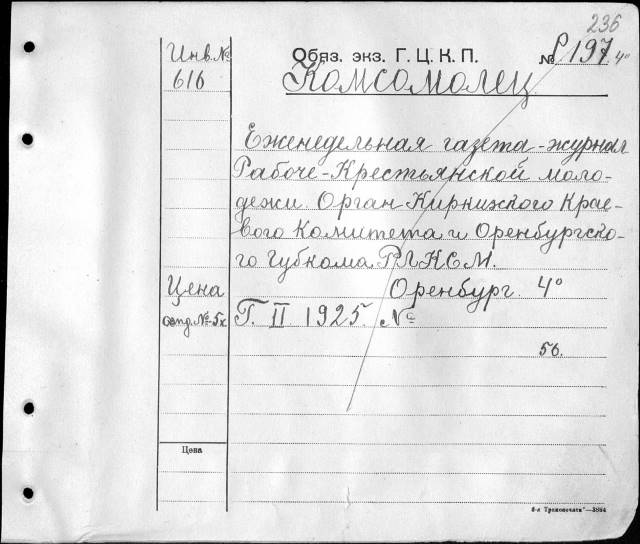 236
Инв. №
616
Обяз. экз. Г. Ц. К. П.
№ Р 197 4°
Комсомолец.
Еженедельная газета-журнал
Рабоче-Крестьянской моло-
дежи. Орган Киркижского Крае-
вого Комитета и Оренбургско-
го Губкома РЛКСМ.
Оренбург. 4°
Цена
отд. №-5к
Г. II 1925. №
56.
Цена
6-я Транспечати"—3864